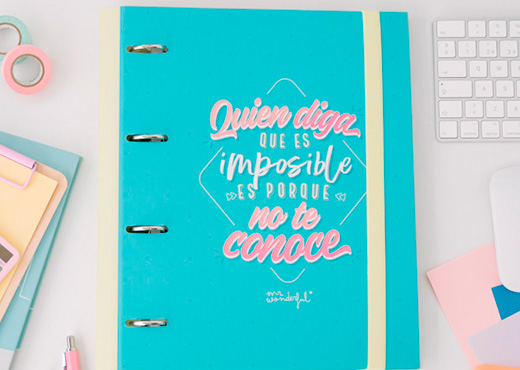 Quien diga
QUE ES
imposible
ES PORQUE
no te
conoce
mr.
wonderful